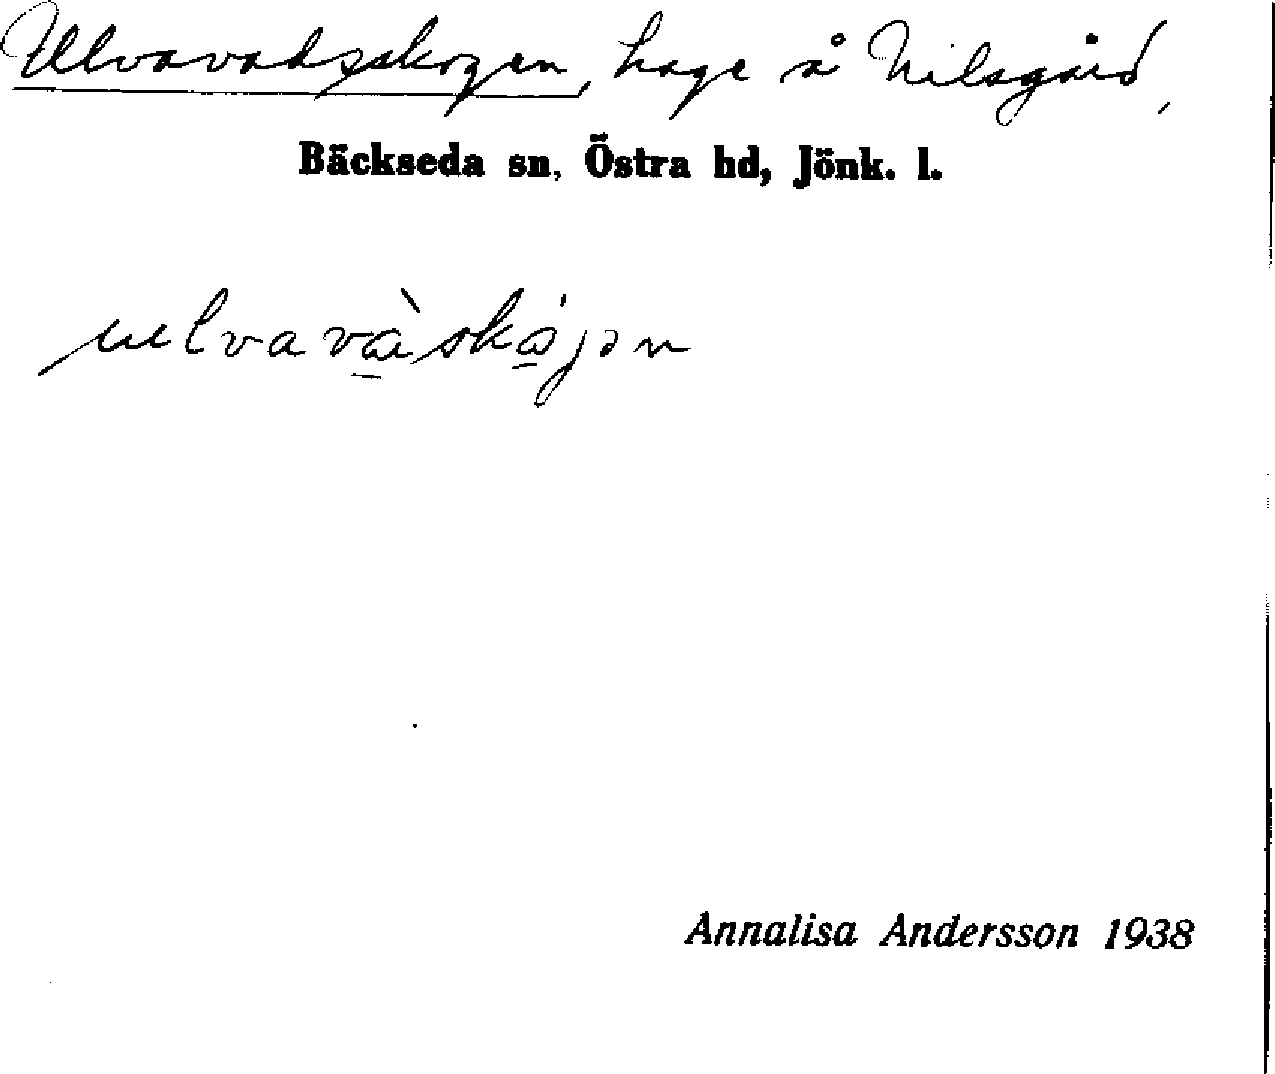 Ulvavadsskogen, hage å Nilsgård,
Bäckseda sn, Östra hd, Jönk. l.
Annalisa Andersson 1938